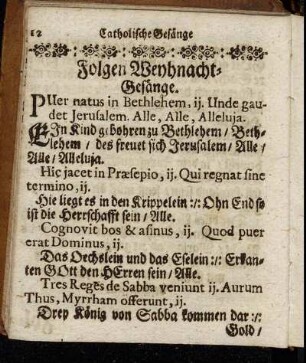 12 Catholische Gesänge
Folgen Weyhnacht-
Gesänge.
PUer natus in Bethlehem, ij. Unde gau-
det Jerusalem. Alle, Alle, Alleluja.
EJn Kind gebohren zu Bethlehem / Beth-
lehem / des freuet sich Jerusalem / Alle /
Alle / Alleluja.
Hic jacet in Præsepio, ij. Qui regnat sine
termino, ij.
Hie liegt es in den Krippelein :/: Ohn End so
ist die Herrschafft sein / Alle.
Cognovit bos & asinus, ij. Quod puer
erat Dominus, ij.
Das Oechslein und das Eselein :/: Erkan-
ten GOtt den HErren sein / Alle.
Tres Reges de Sabba veniunt ij. Aurum
Thus, Myrrham offerunt, ij.
Drey König von Sabba kommen dar :/:
Gold /